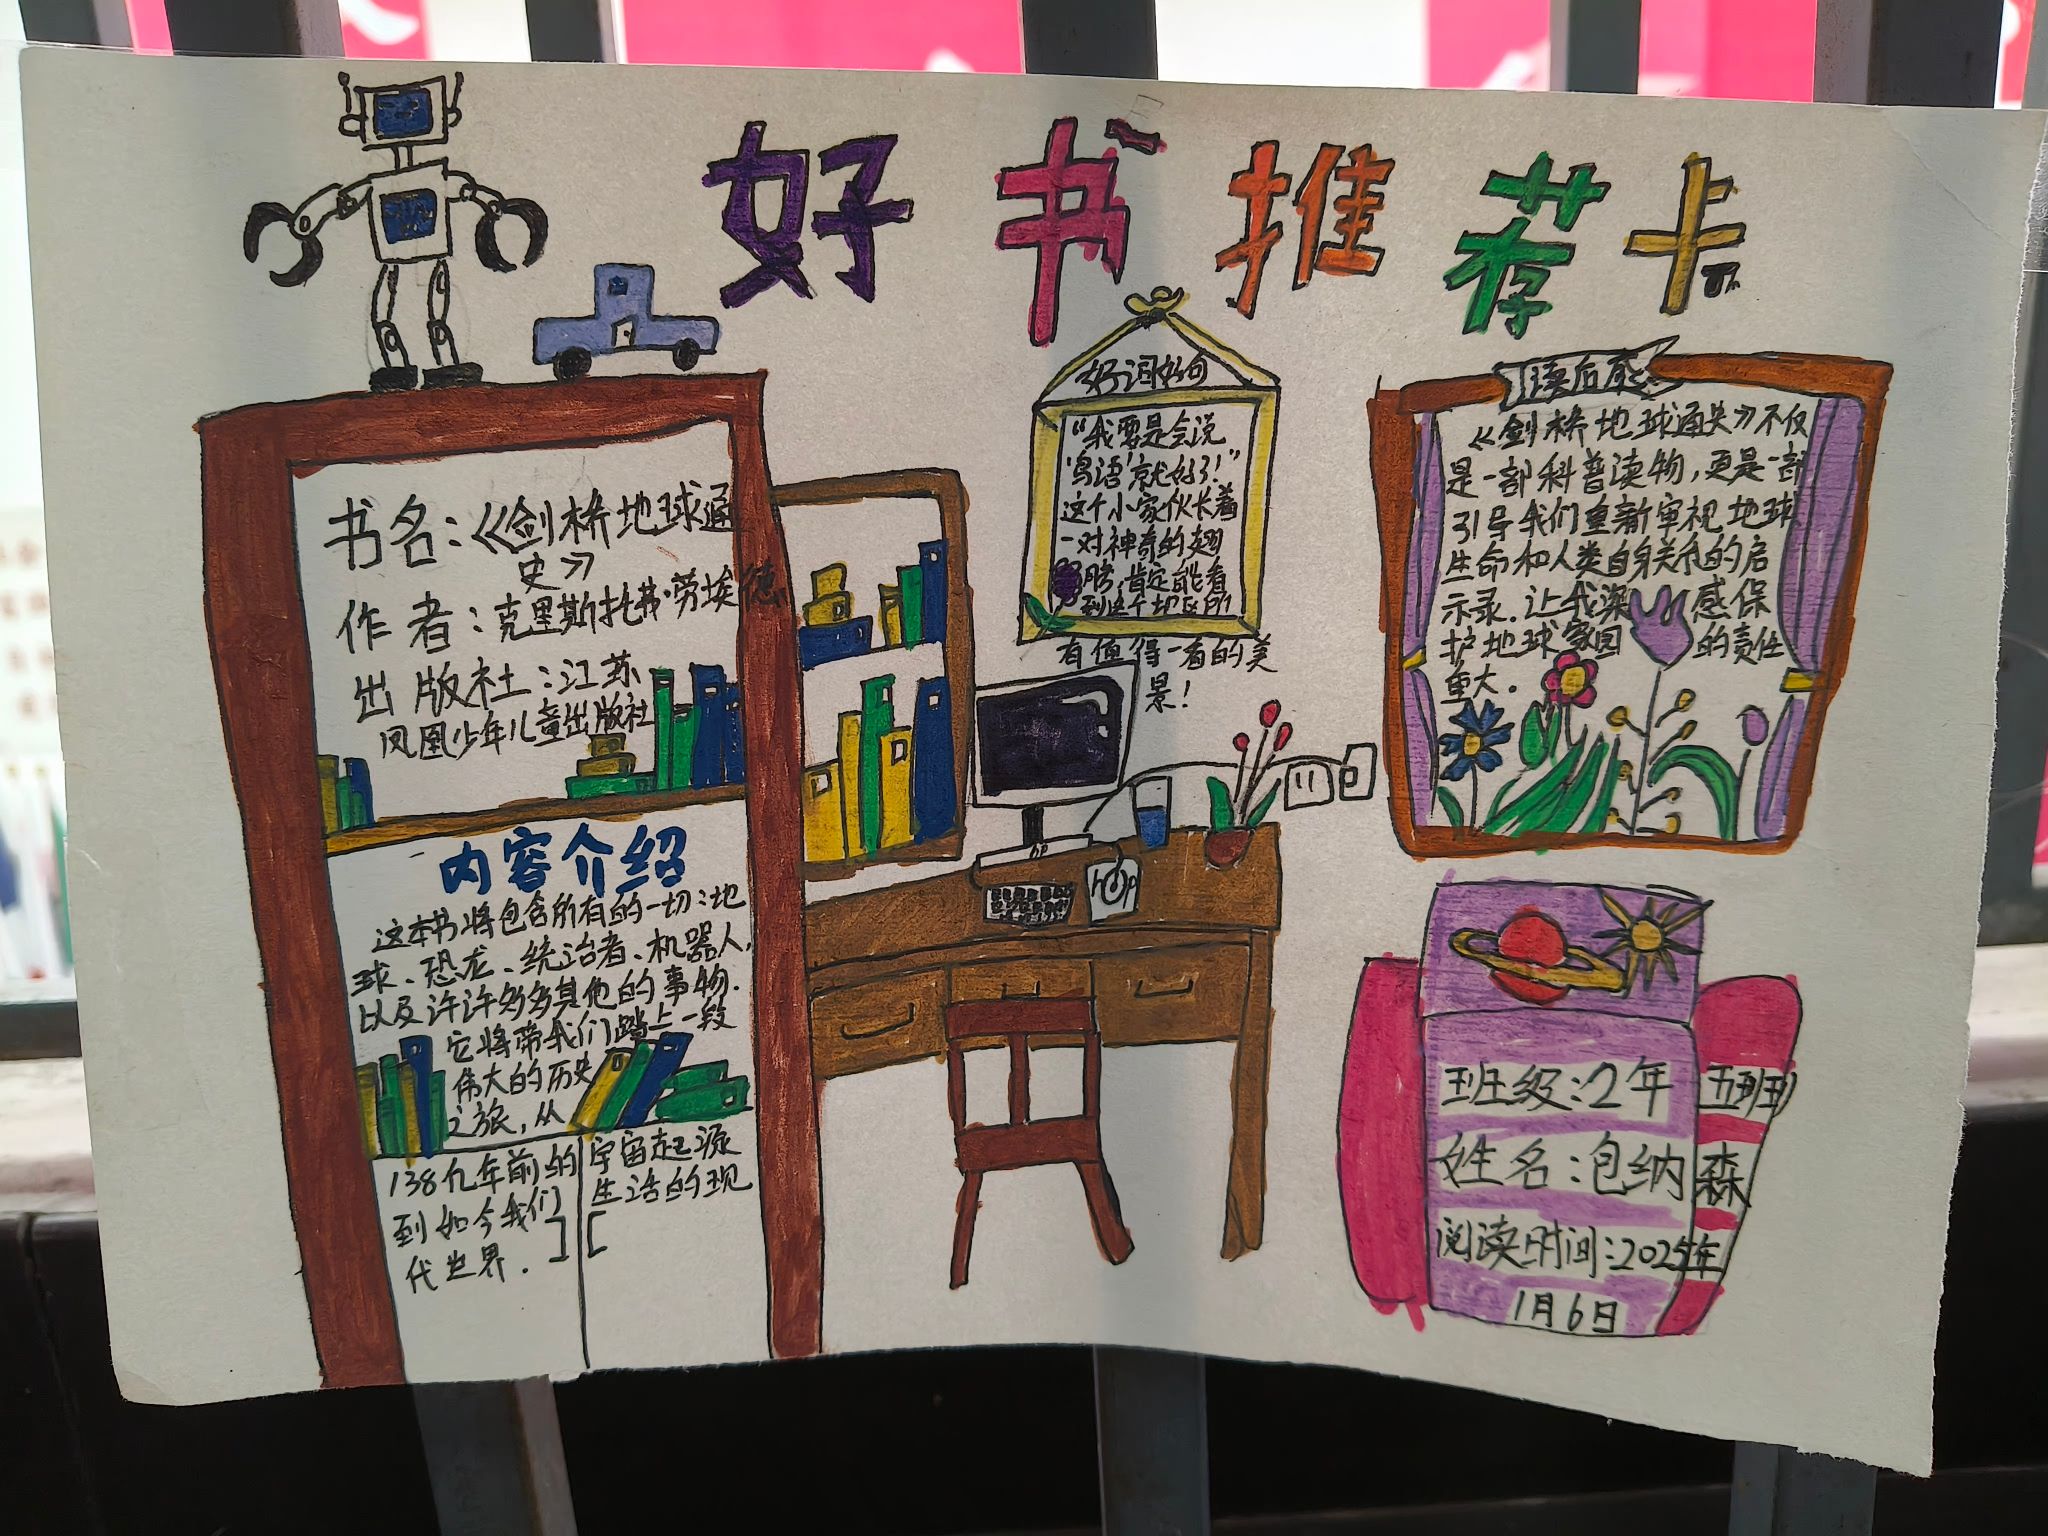 好书推荐卡
书名:《剑桥地球通
史》
作者:克里斯托弗·劳埃德
出版社:江苏
凤凰少年儿童出版社
内容介绍
这本书将包含所有的一切:地
球、恐龙、统治者、机器人,
以及许许多多其他的事物.
它将带我们踏上一段
伟大的历史
之旅,从
138亿年前的宇宙起源
到如今我们生活的现
代世界.
好词好句
“我要是会说
‘鸟语’就好了!”
这个小家伙长着
一对神奇的翅
膀,肯定能看
到这个地区所
有值得一看的美
景!
hp
hp
读后感
《剑桥地球通史》不仅
是一部科普读物,更是一部
引导我们重新审视地球
生命和人类自身关系的启
示录.让我深感保
护地球家园的责任
重大.
班级:2年五班
姓名:包纳森
阅读时间:2025年
1月6日